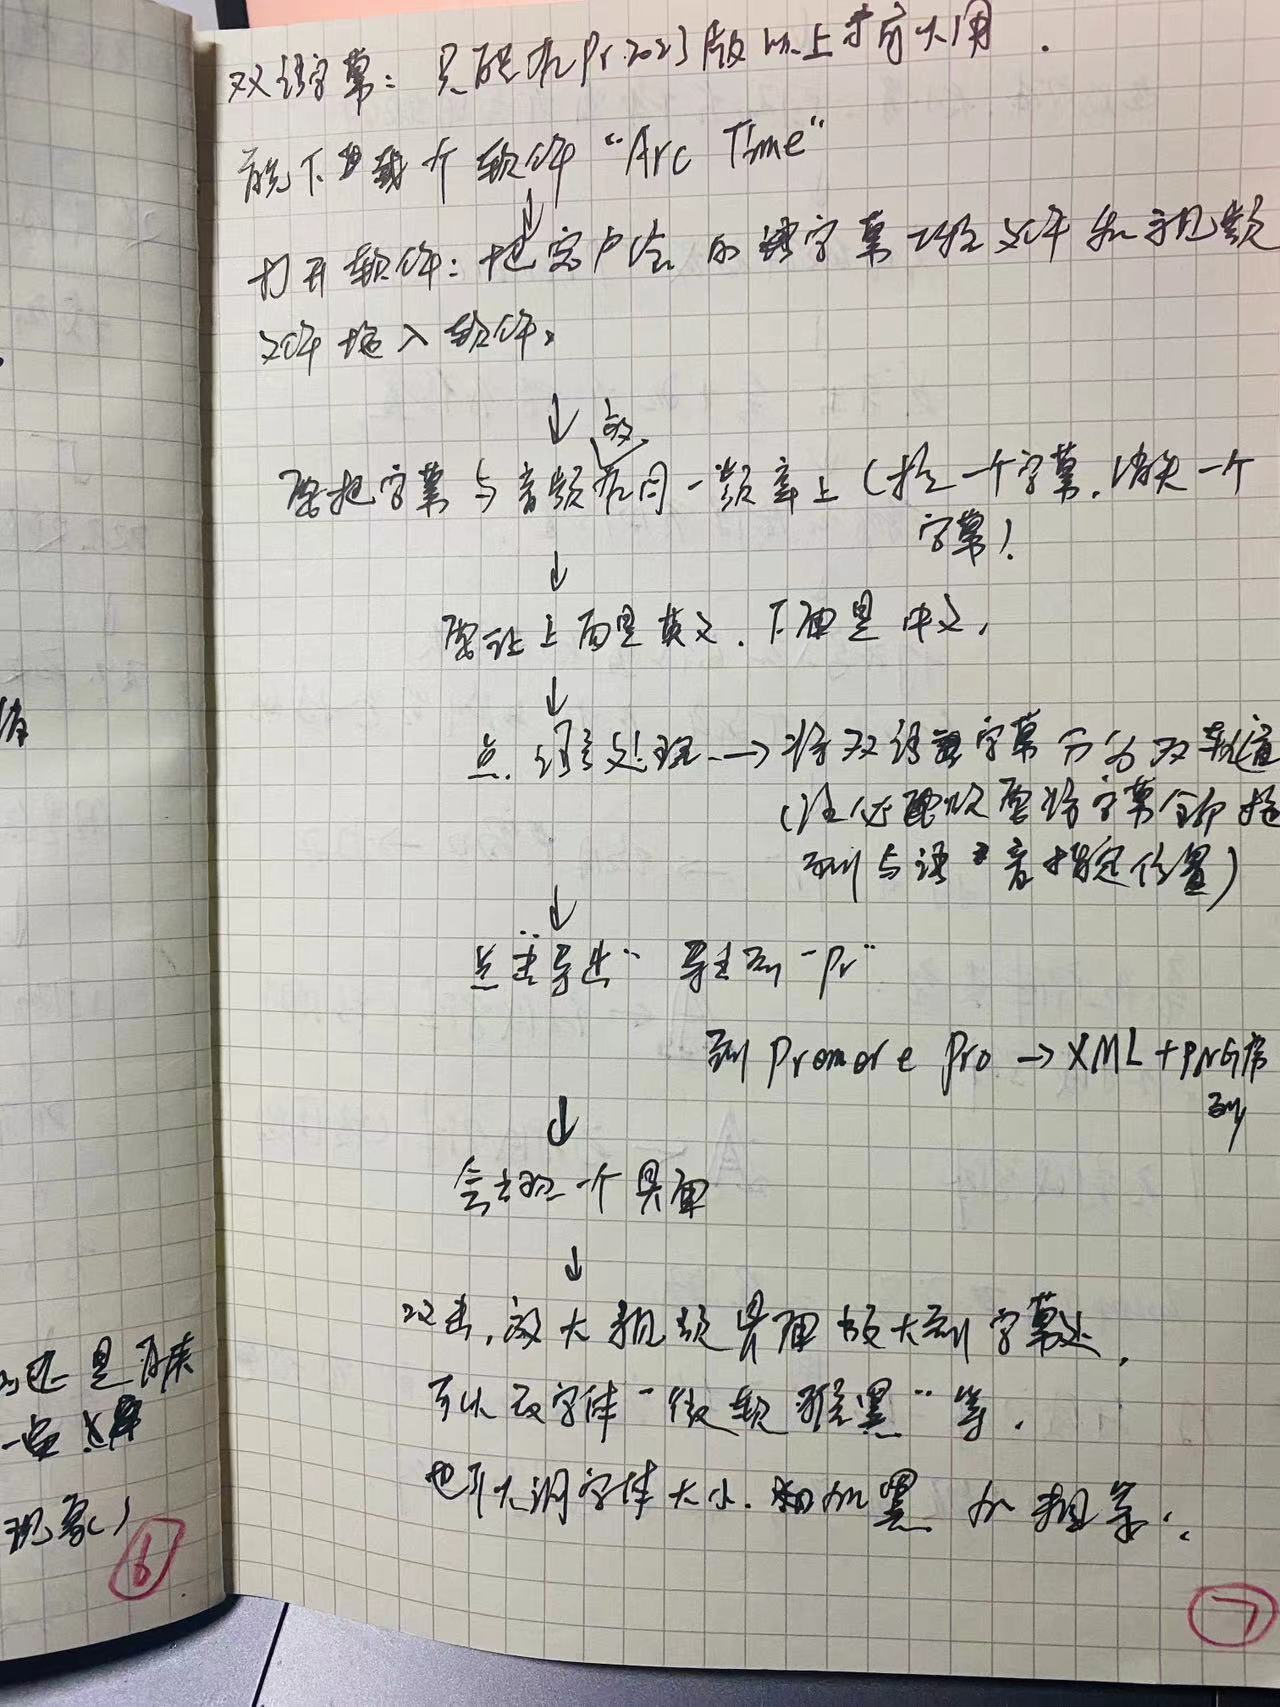 双语字幕：只能在Pr2023版以上才可以用.
首先下载个软件 "Arc Time"
↓
打开软件：把客户给的字幕文件和视频
文件拖入软件。
↓
要把字幕与音频放在同一频率上(拉一个字幕.消失一个
字幕).
↓
要让上面是英文.下面是中文.
↓
点.语言处理 → 将双语字幕分为双轨道
(注 要将字幕全部拖
到与语音指定位置)
↓
点击"导出" 导出到"Pr"
到 Premore Pro → XML+PNG序
列
↓
会出现一个界面
↓
双击,放大视频界面放大到字幕处,
可以改字体"微软雅黑"等.
也可以调字体大小.和加黑 加粗等.
值
还是
一点
现象)
6
7